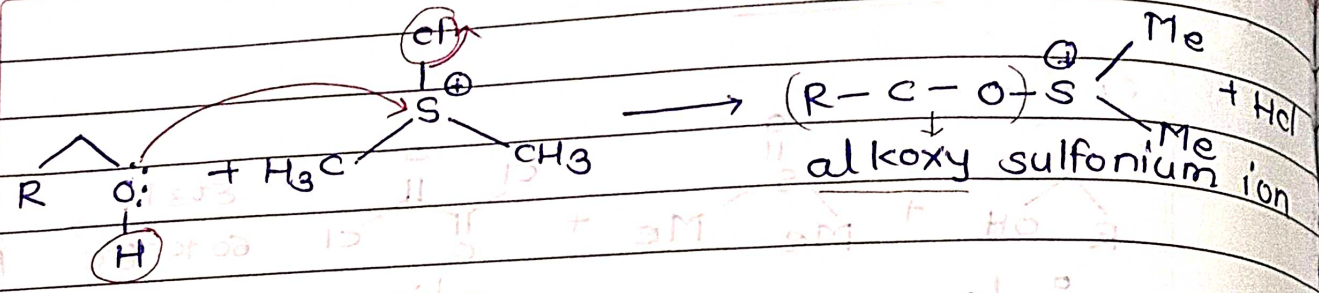 Cl
⊕
S
R O: + H3C CH3 ⟶ (R - C - O) - S ⊕ Me Me + Hcl
H
alkoxy sulfonium ion